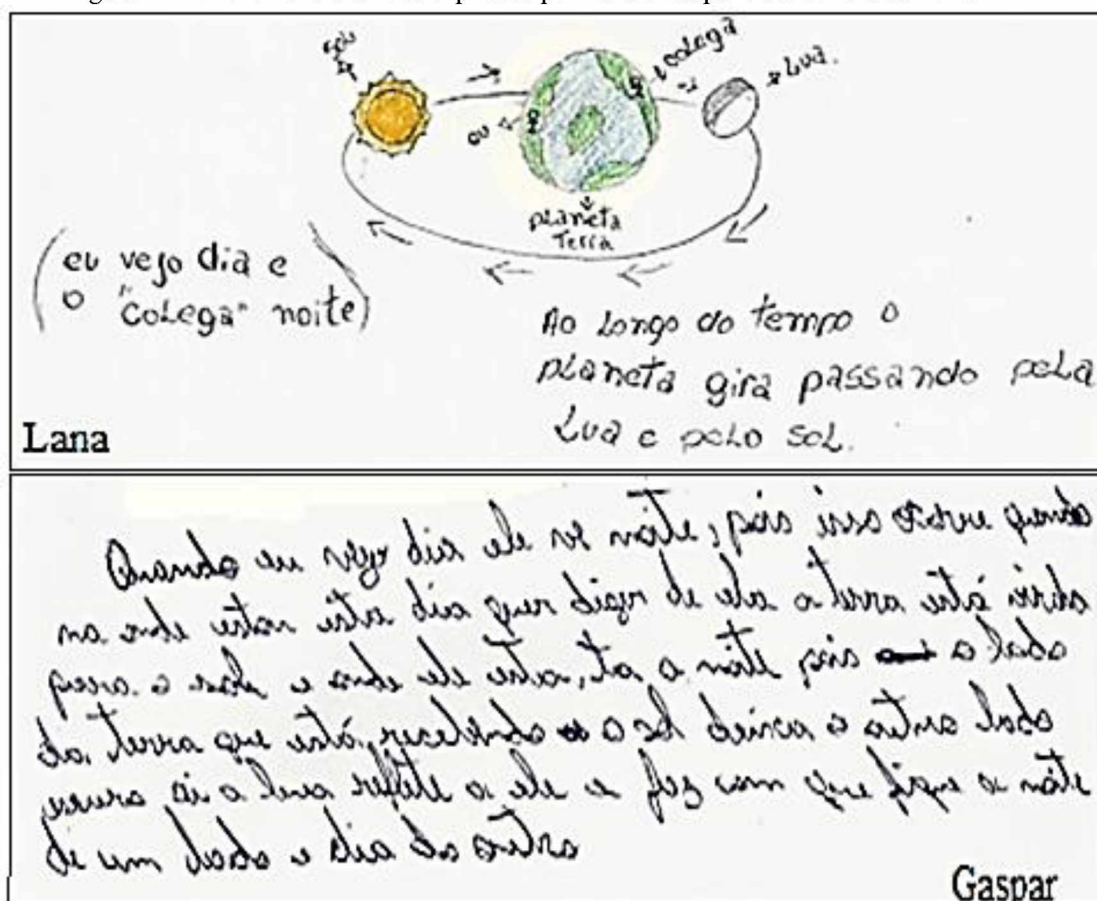 SOL
colega
Lua
eu
planeta
Terra
(eu vejo dia e
o "colega" noite)
Ao Longo do tempo o
planeta gira passando pela
Lua e pelo sol.
Lana
Quando eu vejo dia ele ve noite, pois isso ocorre quando
na onde estou está dia a terra está virada
para o sol e onde ele está, ta a noite, pois o lado
da terra que está o sol o outro lado
escuro, ai a lua reflete a e faz com que fique a noite
de um lado e dia do outro
Gaspar